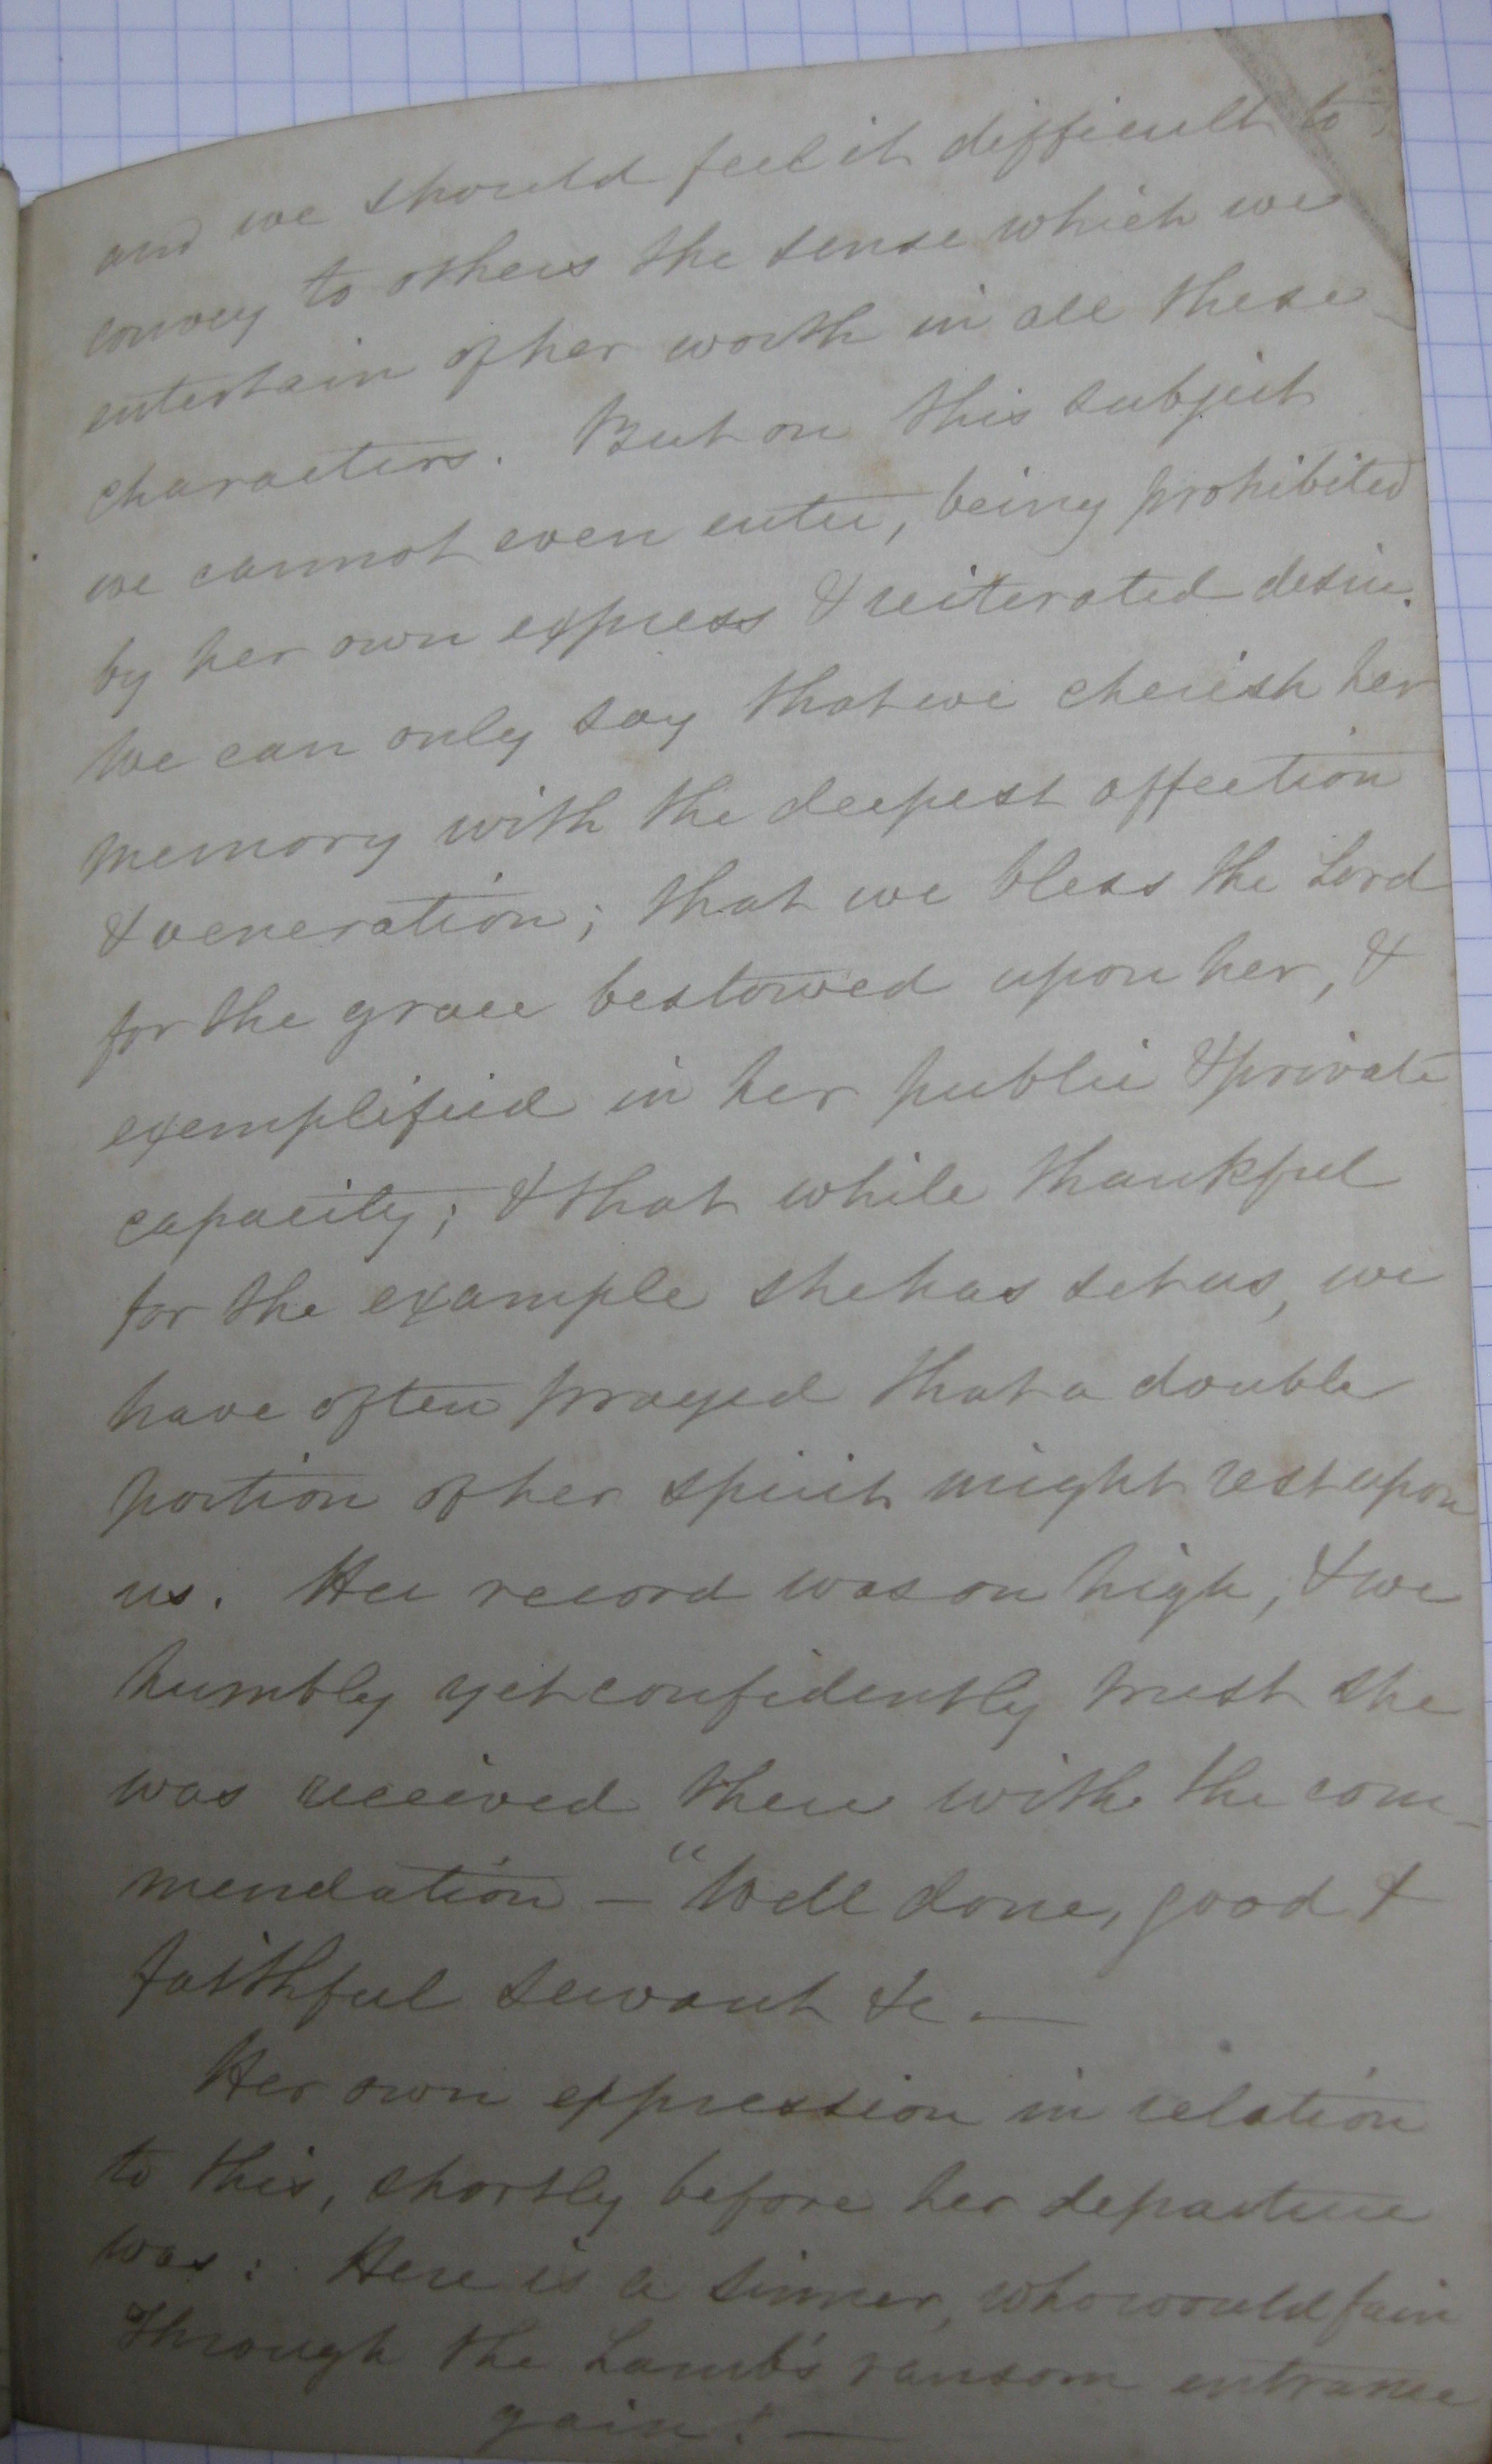 and we should feel it difficult to
convey to others the sense which we
entertain of her worth in all these
characters. But on this subject
we cannot even enter, being prohibited
by her own express & reiterated desire.
We can only say that we cherish her
memory with the deepest affection
& veneration; that we bless the Lord
for the grace bestowed upon her, &
exemplified in her public & private
capacity; & that while thankful
for the example she has set us, we
have often prayed that a double
portion of her spirit might rest upon
us. Her record was on high, & we
humbly yet confidently trust she
was received there with the com-
mendation – "Well done, good &
faithful servant &c. —
Her own expression in relation
to this, shortly before her departure
was: Here is a sinner, who would fain
Through the Lamb's ransom entrance
gain! —